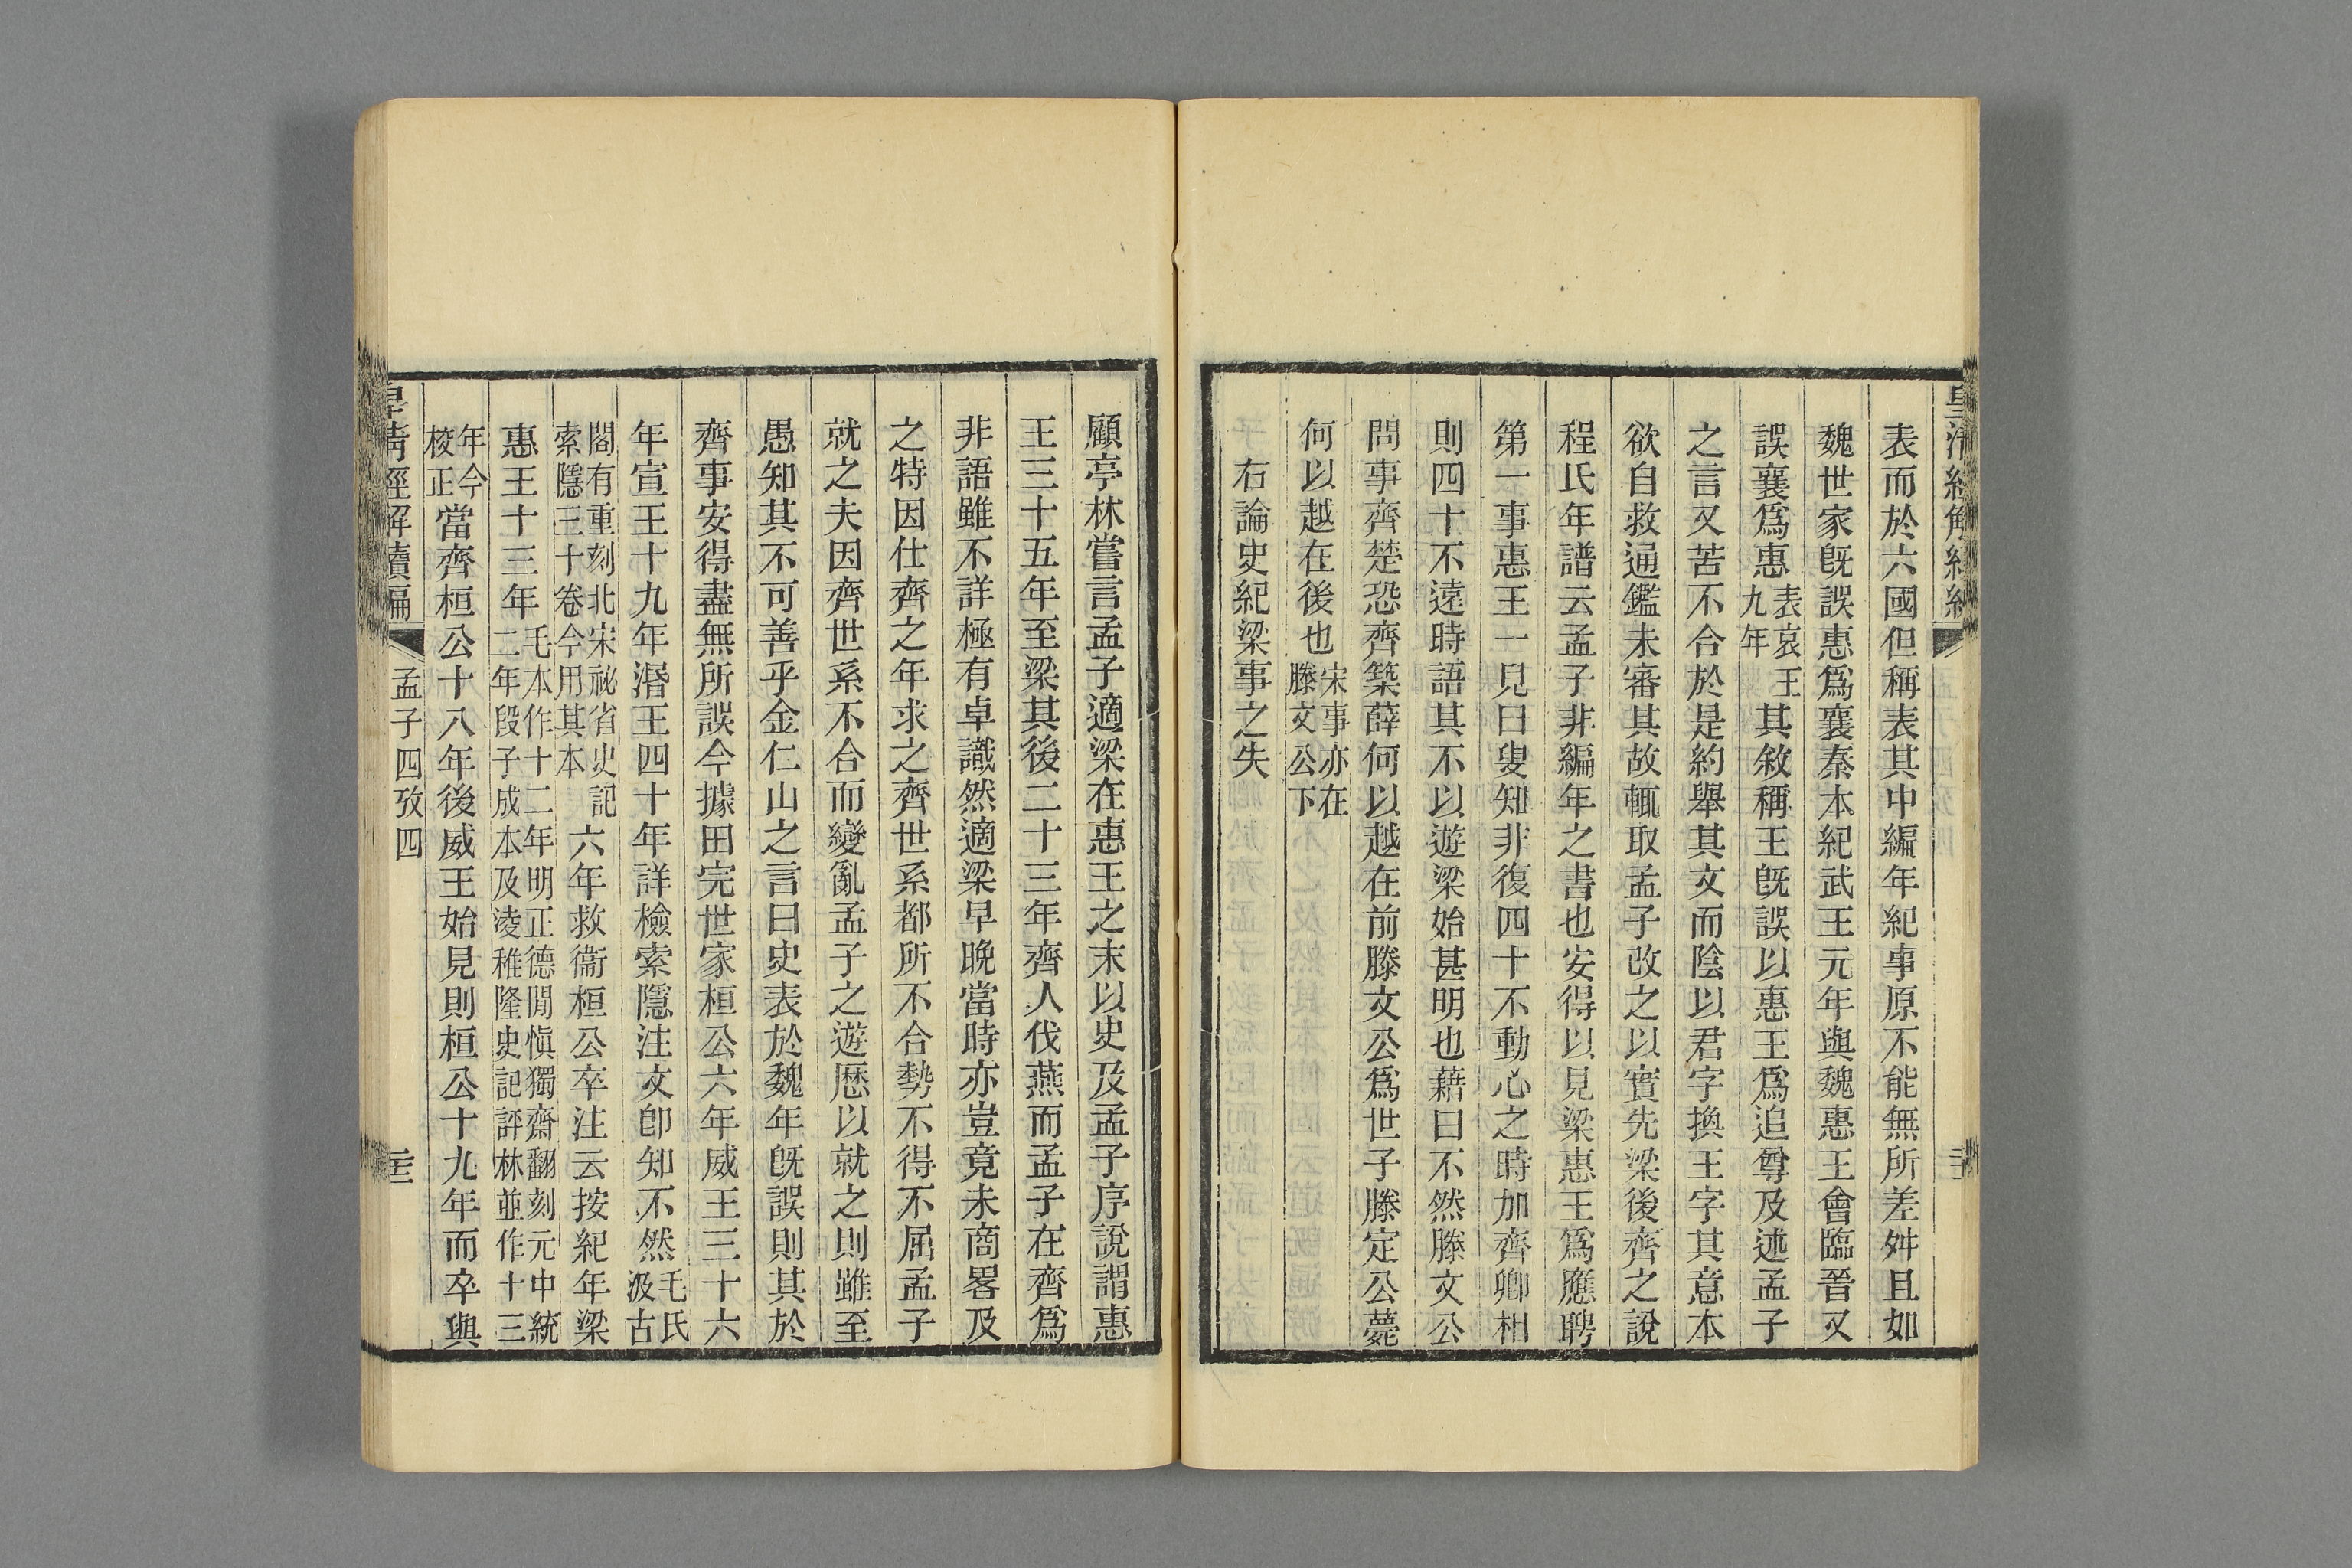 表而於六國但稱表其中編年紀事原不能無所差舛且如
魏世家旣誤惠爲襄秦本紀武王元年與魏惠王會臨晉又
誤襄爲惠表哀王九年其敘稱王旣誤以惠王爲追尊及述孟子
之言又苦不合於是約舉其文而陰以君字換王字其意本
欲自救通鑑未審其故輒取孟子改之以實先梁後齊之說
程氏年譜云孟子非編年之書也安得以見梁惠王爲應聘
第一事惠王一見曰叟知非復四十不動心之時加齊卿相
則四十不遠時語其不以遊梁始甚明也藉曰不然滕文公
問事齊楚恐齊築薛何以越在前滕文公爲世子滕定公薨
何以越在後也宋事亦在滕文公下
右論史紀梁事之失
顧亭林嘗言孟子適梁在惠王之末以史及孟子序說謂惠
王三十五年至梁其後二十三年齊人伐燕而孟子在齊爲
非語雖不詳極有卓識然適梁早晚當時亦豈竟未商畧及
之特因仕齊之年求之齊世系都所不合勢不得不屈孟子
就之夫因齊世系不合而變亂孟子之遊歷以就之則雖至
愚知其不可善乎金仁山之言曰史表於魏年旣誤則其於
齊事安得盡無所誤今據田完世家桓公六年威王三十六
年宣王十九年湣王四十年詳檢索隱注文卽知不然毛氏汲古
閣有重刻北宋祕省史記索隱三十卷今用其本六年救衞桓公卒注云按紀年梁
惠王十三年毛本作十二年明正德閒愼獨齋翻刻元中統二年段子成本及淩稚隆史記評林並作十三
年今校正當齊桓公十八年後威王始見則桓公十九年而卒與
皇淸經解續編 孟子四攷四